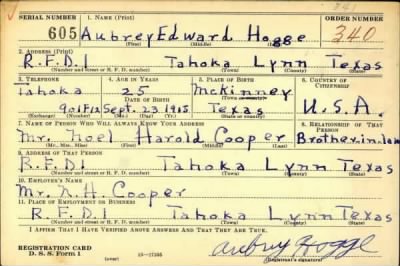 SERIAL NUMBER 1. NAME (Print) ORDER NUMBER
605 Aubrey Edward Hogge 340
(First) (Middle) (Last)
2. ADDRESS (Print)
R.F.D.1 Tahoka Lynn Texas
(Number and street or R. F. D. number) (Town) (County) (State)
3. TELEPHONE 4. AGE IN YEARS 5. PLACE OF BIRTH 6. COUNTRY OF CITIZENSHIP
Tahoka 25 McKinney
DATE OF BIRTH (Town or county)
901F12 Sept. 23, 1915 Texas U.S.A.
(Exchange) (Number) (Mo.) (Day) (Yr.) (State or country)
7. NAME OF PERSON WHO WILL ALWAYS KNOW YOUR ADDRESS 8. RELATIONSHIP OF THAT PERSON
Mr. Noel Harold Cooper Brother in law
(Mr., Mrs., Miss) (First) (Middle) (Last)
9. ADDRESS OF THAT PERSON
R.F.D.1 Tahoka Lynn Texas
(Number and street or R. F. D. number) (Town) (County) (State)
10. EMPLOYER'S NAME
Mr. N.H. Cooper
11. PLACE OF EMPLOYMENT OR BUSINESS
R.F.D.1 Tahoka Lynn Texas
(Number and street or R. F. D. number) (Town) (County) (State)
I AFFIRM THAT I HAVE VERIFIED ABOVE ANSWERS AND THAT THEY ARE TRUE.
REGISTRATION CARD
D. S. S. Form 1 (over) Aubry Hogge
(Registrant's signature)